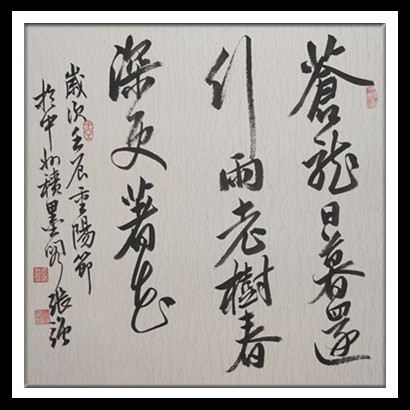 蒼龍日暮還
行雨老樹春
深更著花
歲次壬辰重陽節
於中州積墨閣 張強